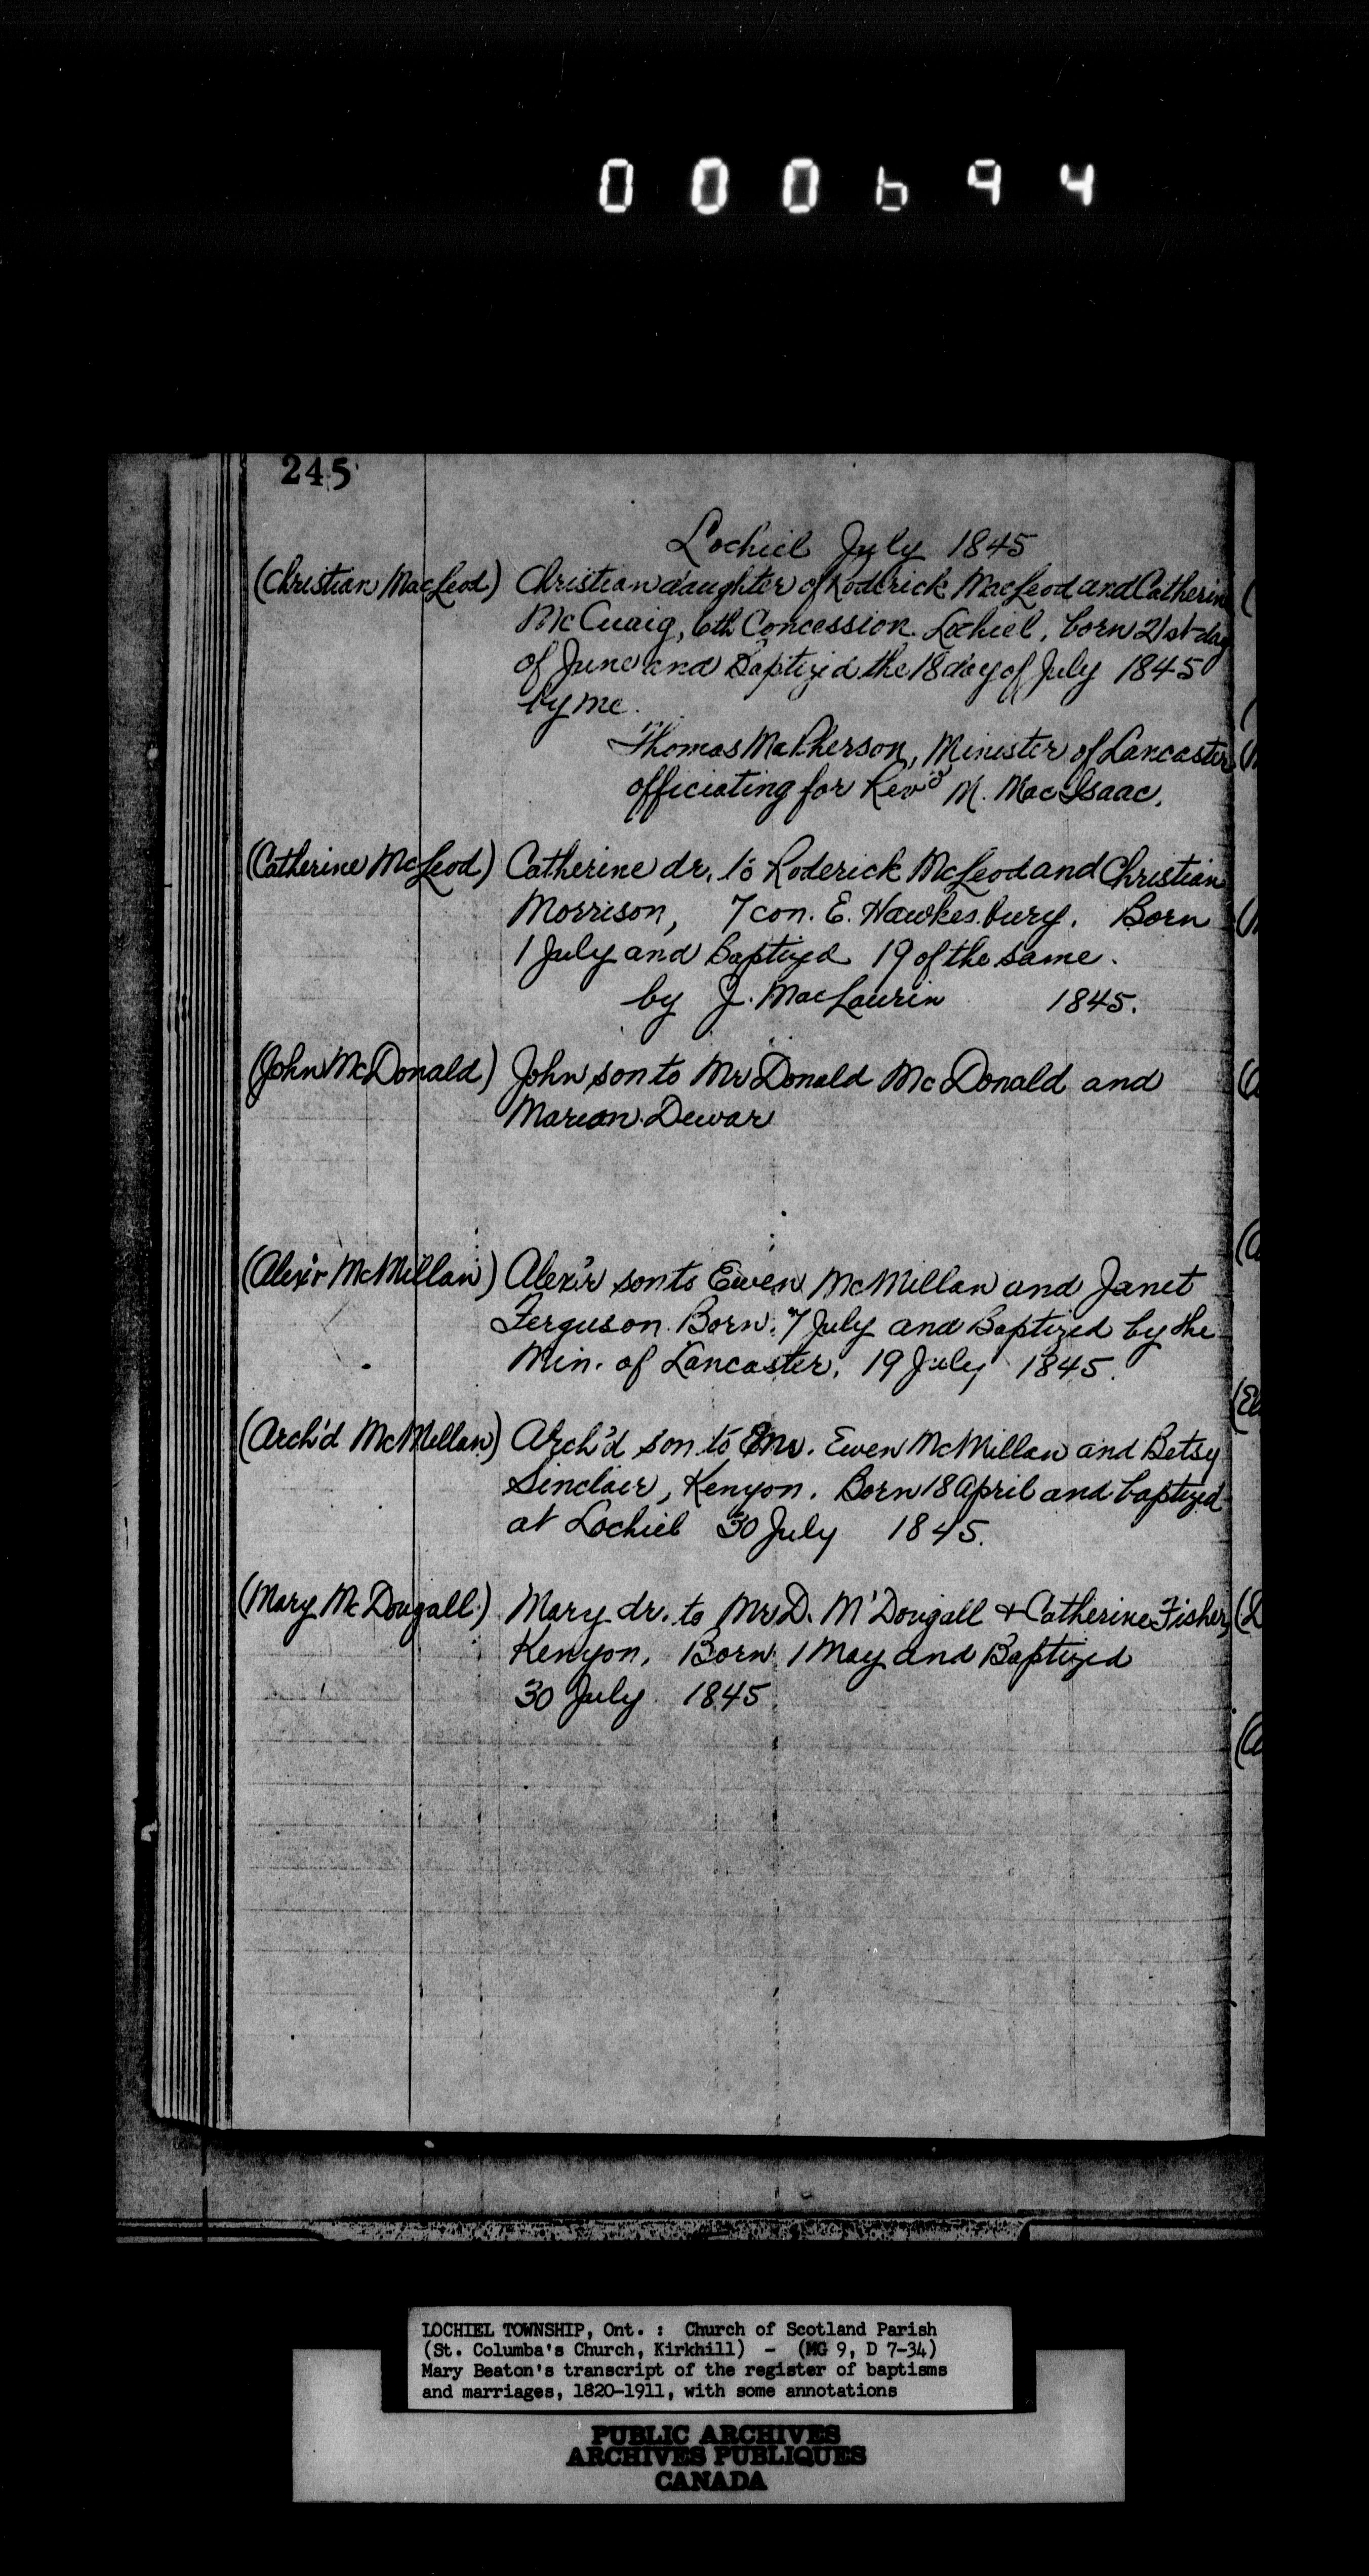 000694
245
Lochiel July 1845
(Christian MacLeod) Christian daughter of Roderick MacLeod and Catherin
McCuaig, 6th Concession Lochiel, born 21st day
of June and Baptized the 18 day of July 1845
by me.
Thomas McPherson, Minister of Lancaster
officiating for Rev'd M. MacIsaac.
(Catherine McLeod) Catherine dr. to Roderick McLeod and Christian
Morrison, 7 con. E. Hawkesbury. Born
1 July and baptized 19 of the same.
by J. MacLaurin 1845.
(John McDonald) John son to Mr Donald McDonald and
Marion Dewar
(Alex'r McMillan) Alex'r son to Ewen McMillan and Janet
Ferguson. Born 7 July and Baptized by the
Min. of Lancaster, 19 July 1845.
(Arch'd McMillan) Arch'd son to Mr. Ewen McMillan and Betsy
Sinclair, Kenyon. Born 18 April and baptized
at Lochiel 30 July 1845.
(Mary McDougall) Mary dr. to Mr D. M'Dougall + Catherine Fisher,
Kenyon, Born 1 May and Baptized
30 July 1845.
LOCHIEL TOWNSHIP, Ont. : Church of Scotland Parish
(St. Columba's Church, Kirkhill) - (MG 9, D 7-34)
Mary Beaton's transcript of the register of baptisms
and marriages, 1820-1911, with some annotations
PUBLIC ARCHIVES
ARCHIVES PUBLIQUES
CANADA